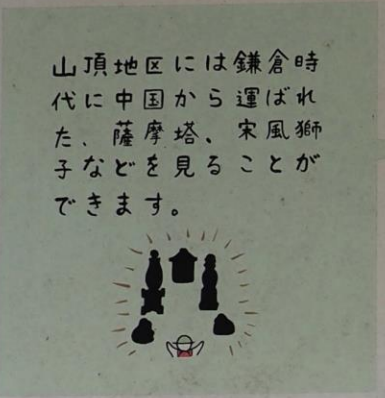 山頂地区には鎌倉時
代に中国から運ばれ
た、薩摩塔、宋風獅
子などを見ることが
できます。